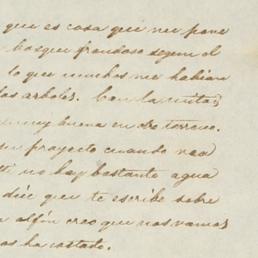 que es cosa que me pone
bosque frondoso segun el
lo que muchos me habian
los arboles. Con la
muy buena en otro terreno.
su proyecto cuando vea
no hay bastante agua
dice que te escribe sobre
alfin creo que nos vamos
ha costado.